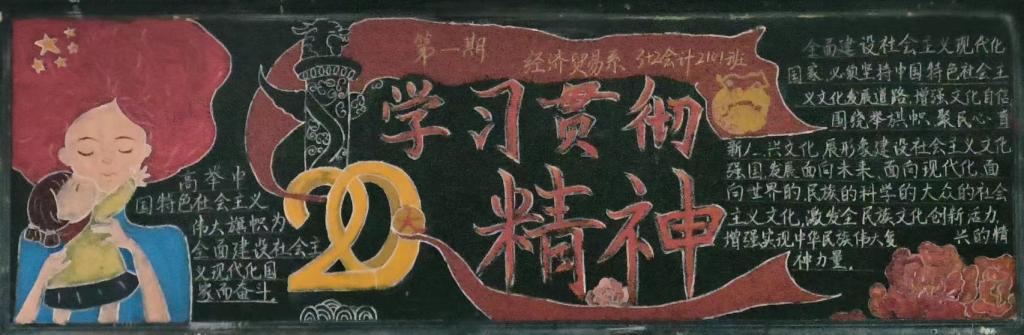 第一期
经济贸易系 会计2101班
学习贯彻
20大
精神
高举中
国特色社会主义
伟大旗帜为
全面建设社会主
义现代化国
家而奋斗。
全面建设社会主义现代化
国家,必须坚持中国特色社会主
义文化发展道路,增强文化自信
围绕举旗帜、聚民心、育
新人、兴文化、展形象建设社会主义文化
强国,发展面向未来、面向现代化、面
向世界的,民族的科学的大众的社会
主义文化,激发全民族文化创新活力,
增强实现中华民族伟大复兴的精
神力量。